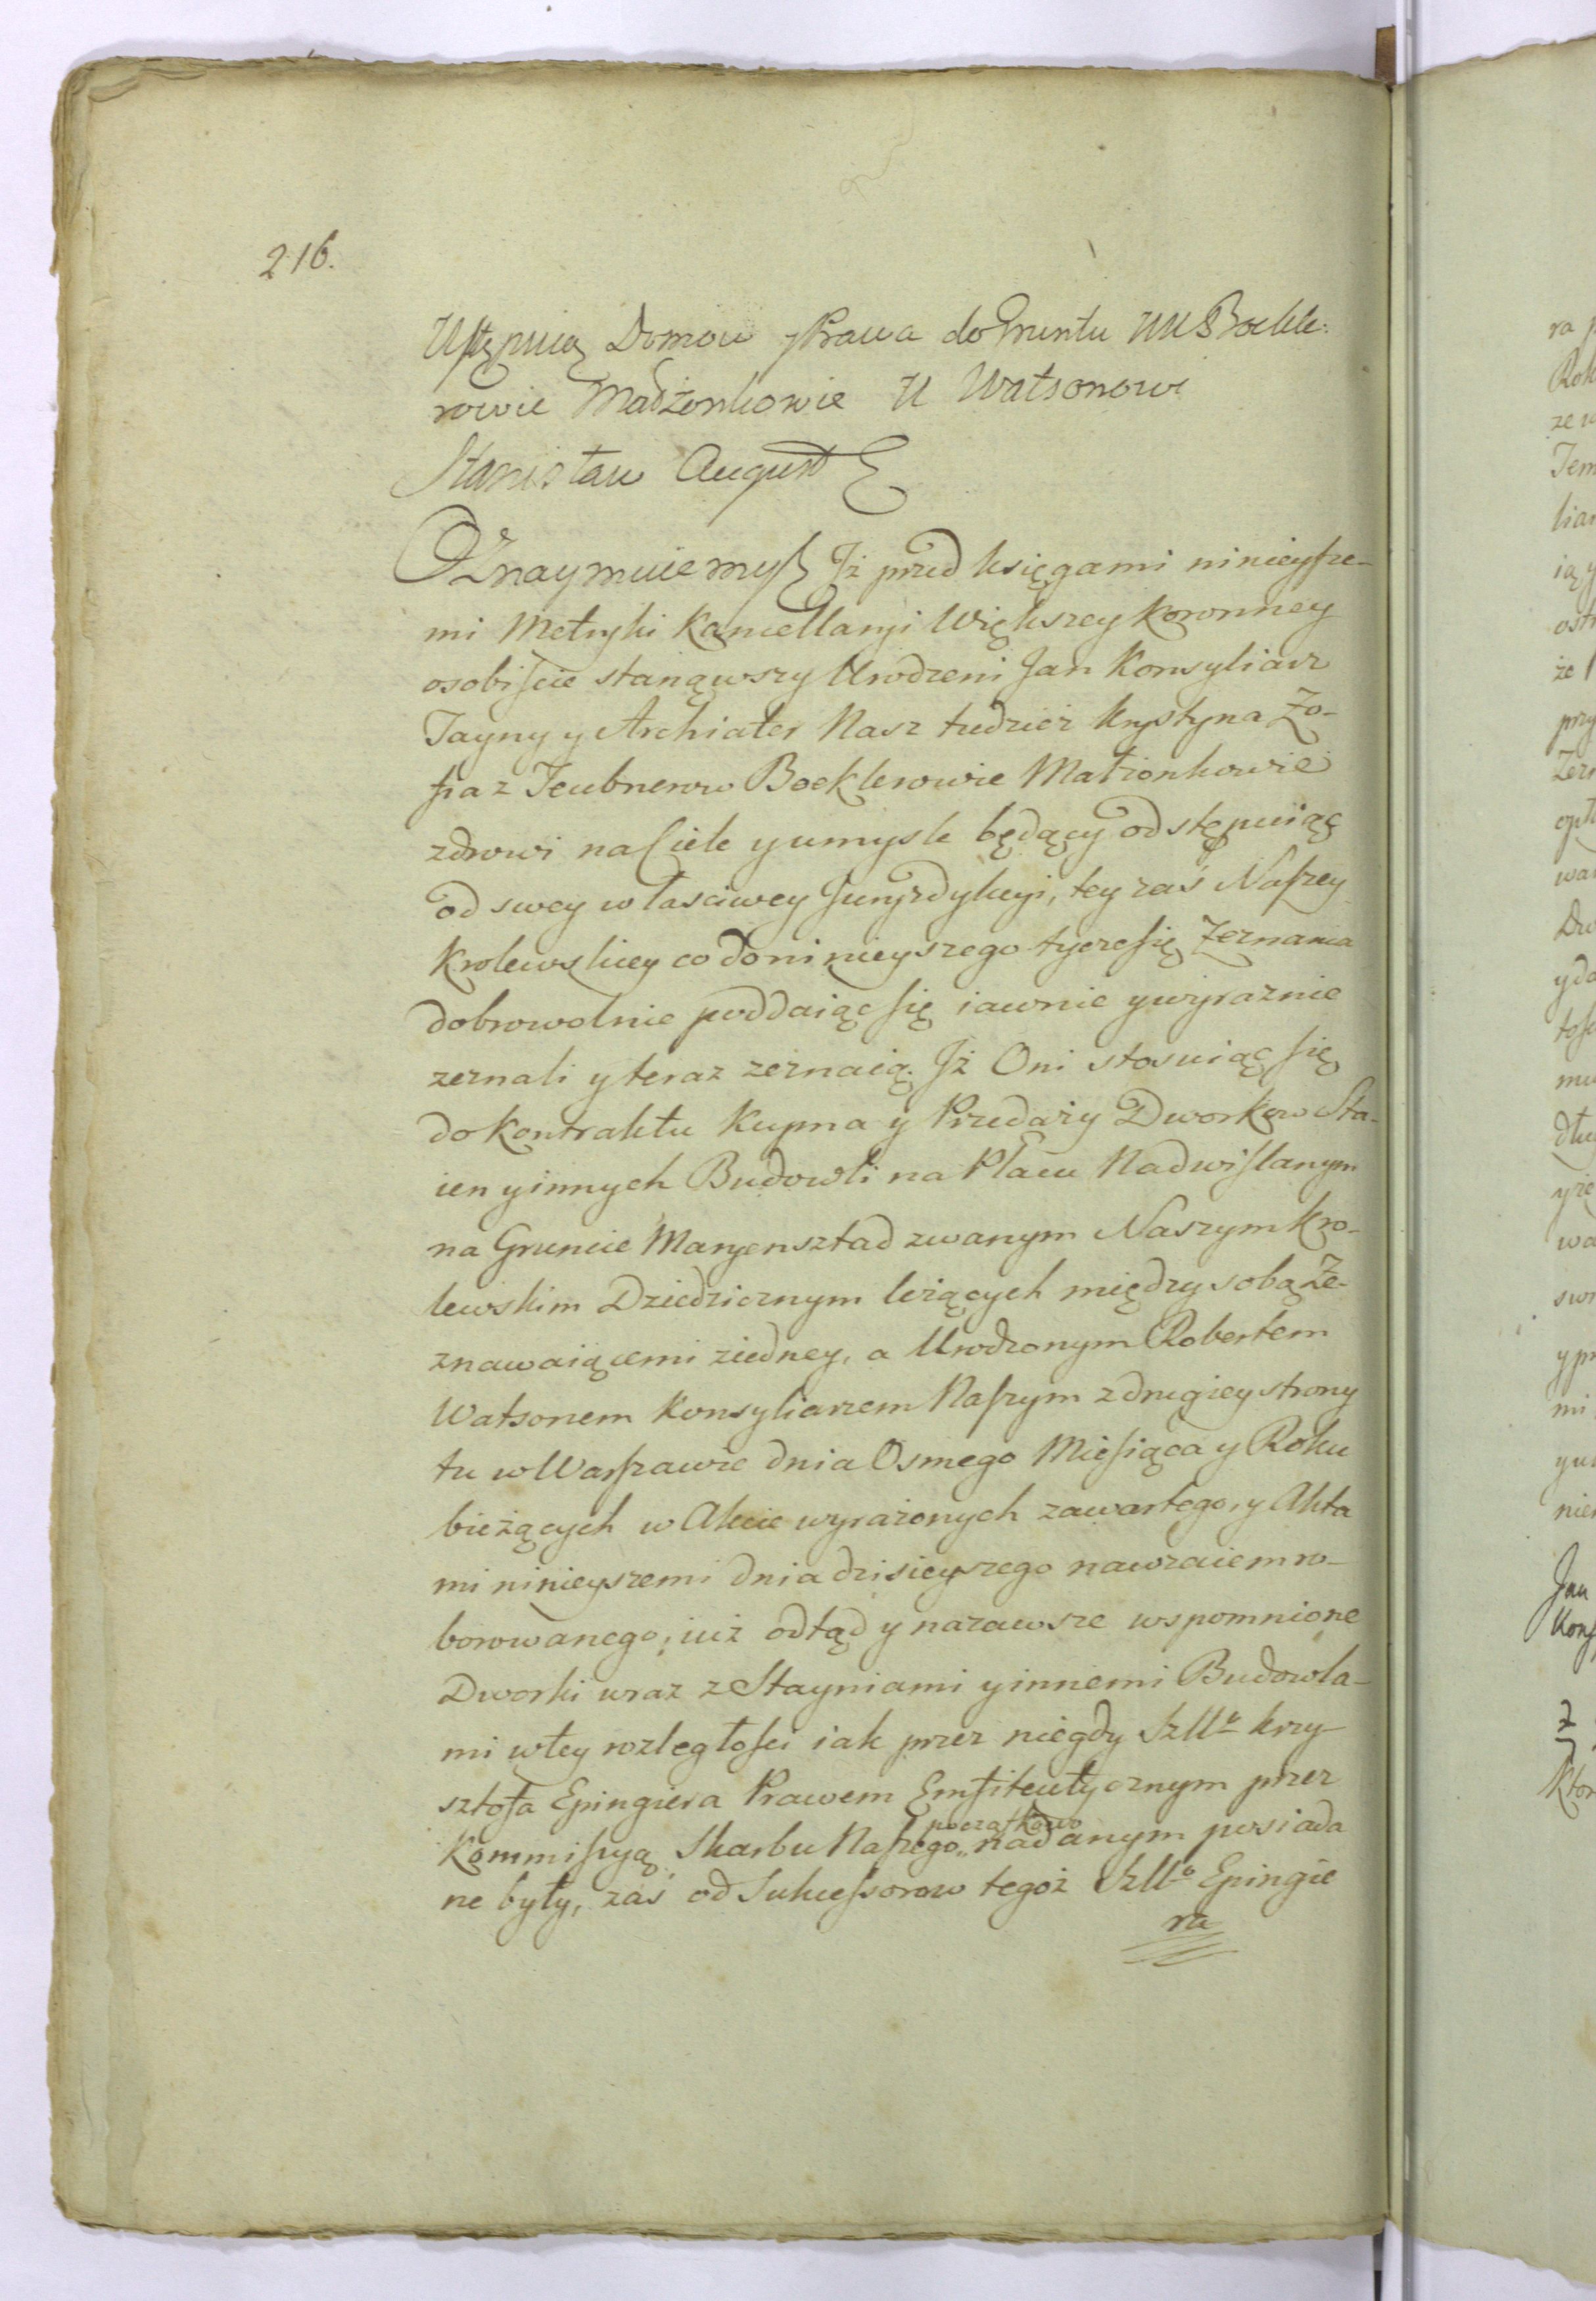 216.
Ustępuią Domow y Prawa do Gruntu UU Boekle:
rowie Małżonkowie U Watsonowi
Stanisław August
Oznaymuiemy Jż przed księgami ninieysze-
mi Metryki Kancellaryi Większey Koronney
osobiście stanąwszy Urodzeni Jan Konsyliarz
Tayny y Archiater Nasz tudzież Krystyna Zo-
fia z Teubnerow Boeklerowie Małżonkowie
zdrowi na Ciele y umysle będący odstępuiąc
od swey własciwey Juryzdykcyi, tey zaś Naszey
Krolewskiey co do ninieyszego tycze się Zeznania
dobrowolnie poddaiąc się iawnie y wyraznie
zeznali y teraz zeznaią. Jż Oni stosuiąc się
do Kontraktu Kupna y Przedaży Dworkow Sta-
ien y innych Budowli na Placu Nadwiślanym
na Gruncie Maryensztad zwanym Naszym Kro-
lewskim Dziedzicznym leżących między sobą Ze-
znawaiącemi z iedney, a Urodzonym Robertem
Watsonem Konsyliarzem Naszym z drugiey strony
tu w Warszawie dnia Osmego Miesiąca y Roku
bieżących w Akcie wyrażonych zawartego, y Akta
mi ninieyszemi dnia dzisieyszego nawzaiem ro-
borowanego, iuż odtąd y nazawsze wspomnione
Dworki wraz z Stayniami y innemi Budowla-
mi w tey rozległości iak przez niegdy Szll° Krzy
sztofa Epingiera Prawem Emfiteutycznym przez
Kommissyą Skarbu Naszego początkowo nadanym posiada
ne były, zaś od Sukcessorow tegoż Szll° Epingie
ra
ra
Rok
Tem
lia
ostr
że
prz
opł
wa
Dw
y do
mu
dłu
wa
swo
y pr
mi
nie
Jan
Kons
Ktor